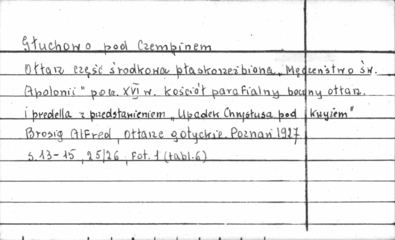 Głuchowo pod Czempinem
Ołtarz część środkowa płaskorzeźbiona „Męczeństwo św.
Apolonii" pocz. XVI w. kościół parafialny boczny ołtarz.
i predella z przedstawieniem „Upadek Chrystusa pod krzyżem"
Brosig Alfred, ołtarze gotyckie. Poznań 1927
s. 13-15, 25/26, Fot. 1 (tabl. 6)